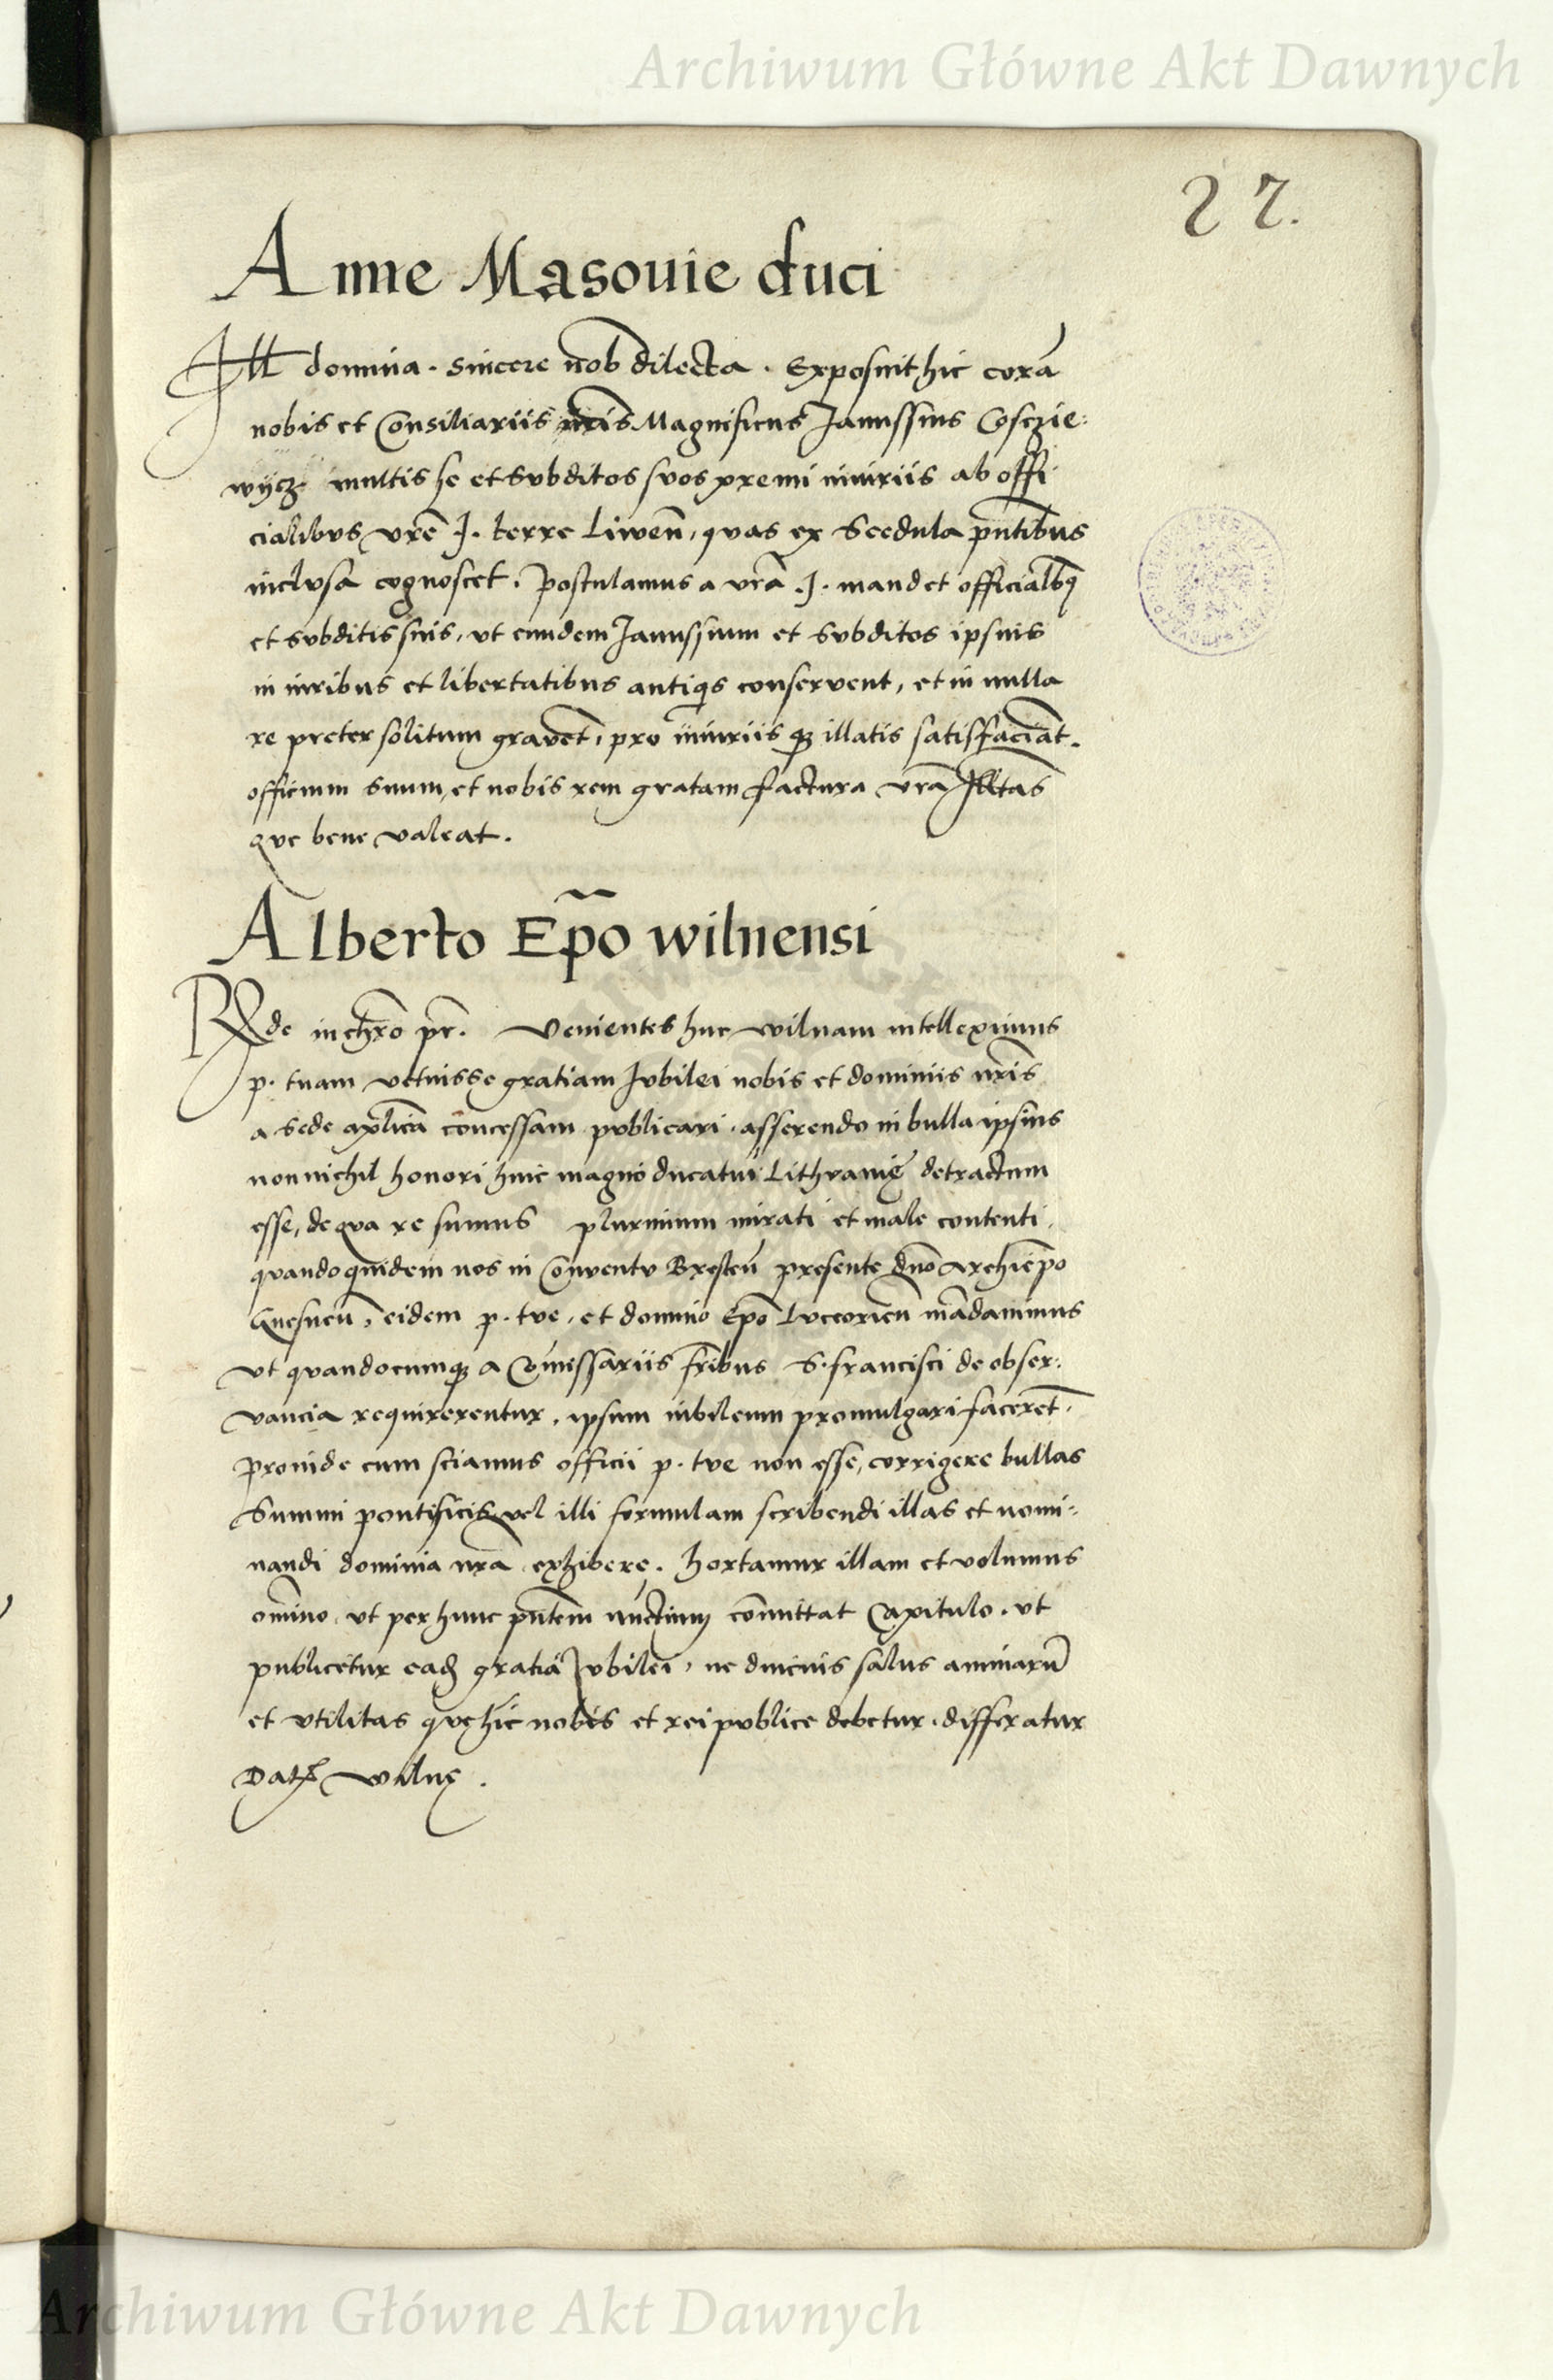 Archiwum Główne Akt Dawnych
27.
Anne Masovie duci
Ill domina. sincere nob dilecta. Exposuit hic corã
nobis et Consiliariis nr̃is Magnificus Janussius Cosczie:
wycz multis se et subditos suos premi iniuriis ab offi
cialibus vr̃e J. terre Liwen̄, quas ex Scedula pn̄tibus
inclusa cognoscet. Postulamus a vr̃a .J. mandet officialibq
et subditis suis, ut eundem Janussium et subditos ipsius
in iuribus et libertatibus antiqis conservent, et in nulla
re preter solitum gravẽt, pro iniuriis qz illatis satisfaciãt.
officium suum, et nobis rem gratam factura vr̃a Illtas
que bene valeat.
Alberto Ep̃o wilnensi
Rde in chr̃o pr̃. Venientes huc wilnam intelleximus
p. tuam vetuisse gratiam Jubilei nobis et dominiis nr̃is
a Sede ap̃licã concessam publicari. asserendo in bulla ipsius
non nichil honori huic magno ducatui Lithvanię detractum
esse, de qua re sumus plurimum mirati et male contenti,
quandoquidem nos in Conventu Bresten̄ presente dn̄o Archiep̃o
Gnesnen̄, eidem p. tue, et domino Ep̃o Luceorien̄ mãdavimus
ut quandocumqz a Com̄issariis fr̃ibus S. francisci de obser:
vancia requirerentur, ipsum iubileum promulgari facerẽt.
Proinde cum sciamus officii p. tue non esse, corrigere bullas
Summi pontificis, vel illi formulam scribendi illas et nomi-
nandi dominia nr̃a exhibere. hortamur illam et volumus
om̄ino, ut per hunc pn̄tem nunctium com̄ittat Capitulo. ut
publicetur eadz gratia Jubilei, ne diucius salus animarũ
et utilitas que hic nobis et rei publice debetur. differatur
Dat wilnę.
Archiwum Główne Akt Dawnych